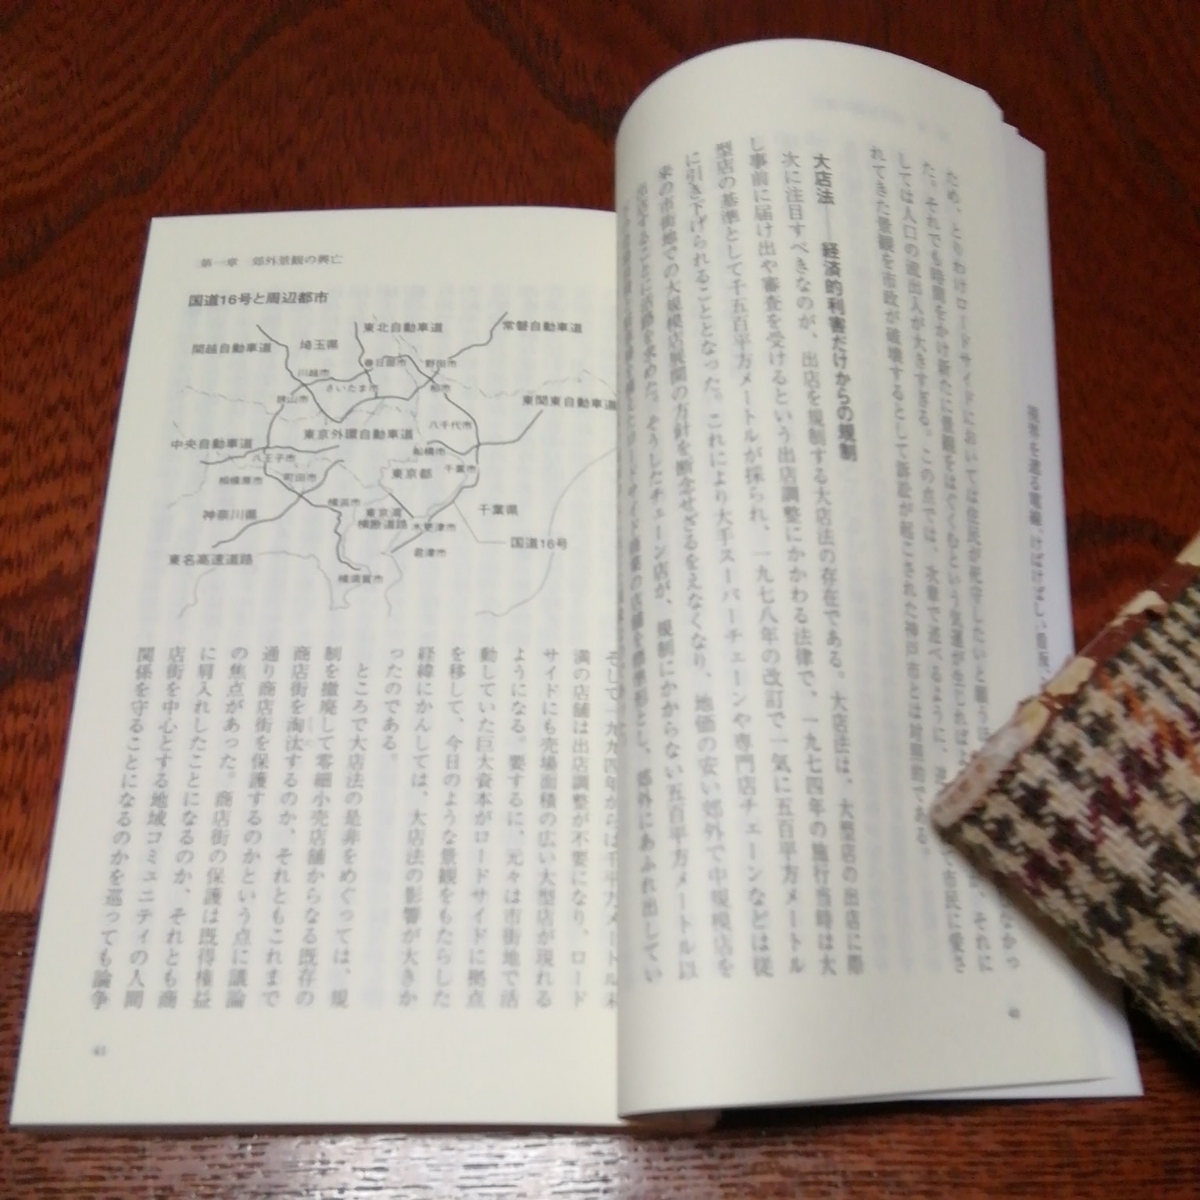 ため、とりわけロードサイドにおいては住民が死守したいと願う
た。それでも時間をかけ新たに景観をはぐくむという気運が生じれば
しては人口の流出入が大きすぎる。この点では、次章で述べるように、
れてきた景観を市政が破壊するとして訴訟が起こされた
市とは対照的である。
大店法――経済的利害だけからの規制
次に注目すべきなのが、出店を規制する大店法の存在である。大店法は、大型店の出店に際
し事前に届け出や審査を受けるという出店調整にかかわる法律で、一九七四年の施行当時は大
型店の基準として千五百平方メートルが採られ、一九七八年の改訂で一気に五百平方メートル
に引き下げられることとなった。これにより大手スーパーチェーンや専門店チェーンなどは従
来の市街地での大規模店展開の方針を断念せざるをえなくなり、地価の安い郊外で中規模店を
出店することに活路を求めた。そうしたチェーン店が、規制にかからない五百平方メートル以
郊外にあふれ出してい
40
第一章 郊外景観の興亡
国道16号と周辺都市
東北自動車道
常磐自動車道
関越自動車道
埼玉県
春日部市
野田市
川越市
さいたま市
柏市
狭山市
東関東自動車道
八千代市
東京外環自動車道
中央自動車道
船橋市
八王子市
東京都
千葉市
相模原市
町田市
横浜市
神奈川県
東京湾
横断道路
木更津市
千葉県
国道16号
君津市
東名高速道路
横須賀市
そして一九九四年からは千平方メートル未
満の店舗は出店調整が不要になり、ロード
サイドにも売場面積の広い大型店が現れる
ようになる。要するに、元々は市街地で活
動していた巨大資本がロードサイドに拠点
を移して、今日のような景観をもたらした
経緯にかんしては、大店法の影響が大きか
ったのである。
ところで大店法の是非をめぐっては、規
制を撤廃して零細小売店舗からなる既存の
商店街を淘汰するのか、それともこれまで
通り商店街を保護するのかという点に議論
の焦点があった。商店街の保護は既得権益
に肩入れしたことになるのか、それとも商
店街を中心とする地域コミュニティの人間
関係を守ることになるのかを巡っても論争
41